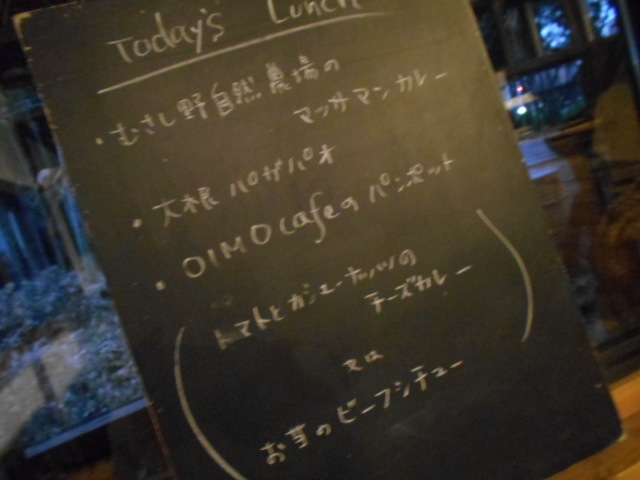 Today's Lunch
・むさし野自然農場の
マッサマンカレー
・大根パオザパオ
・OIMO cafeのパンポット
(トマトとカシューナッツの
チーズカレー
又は
お芋のビーフシチュー)